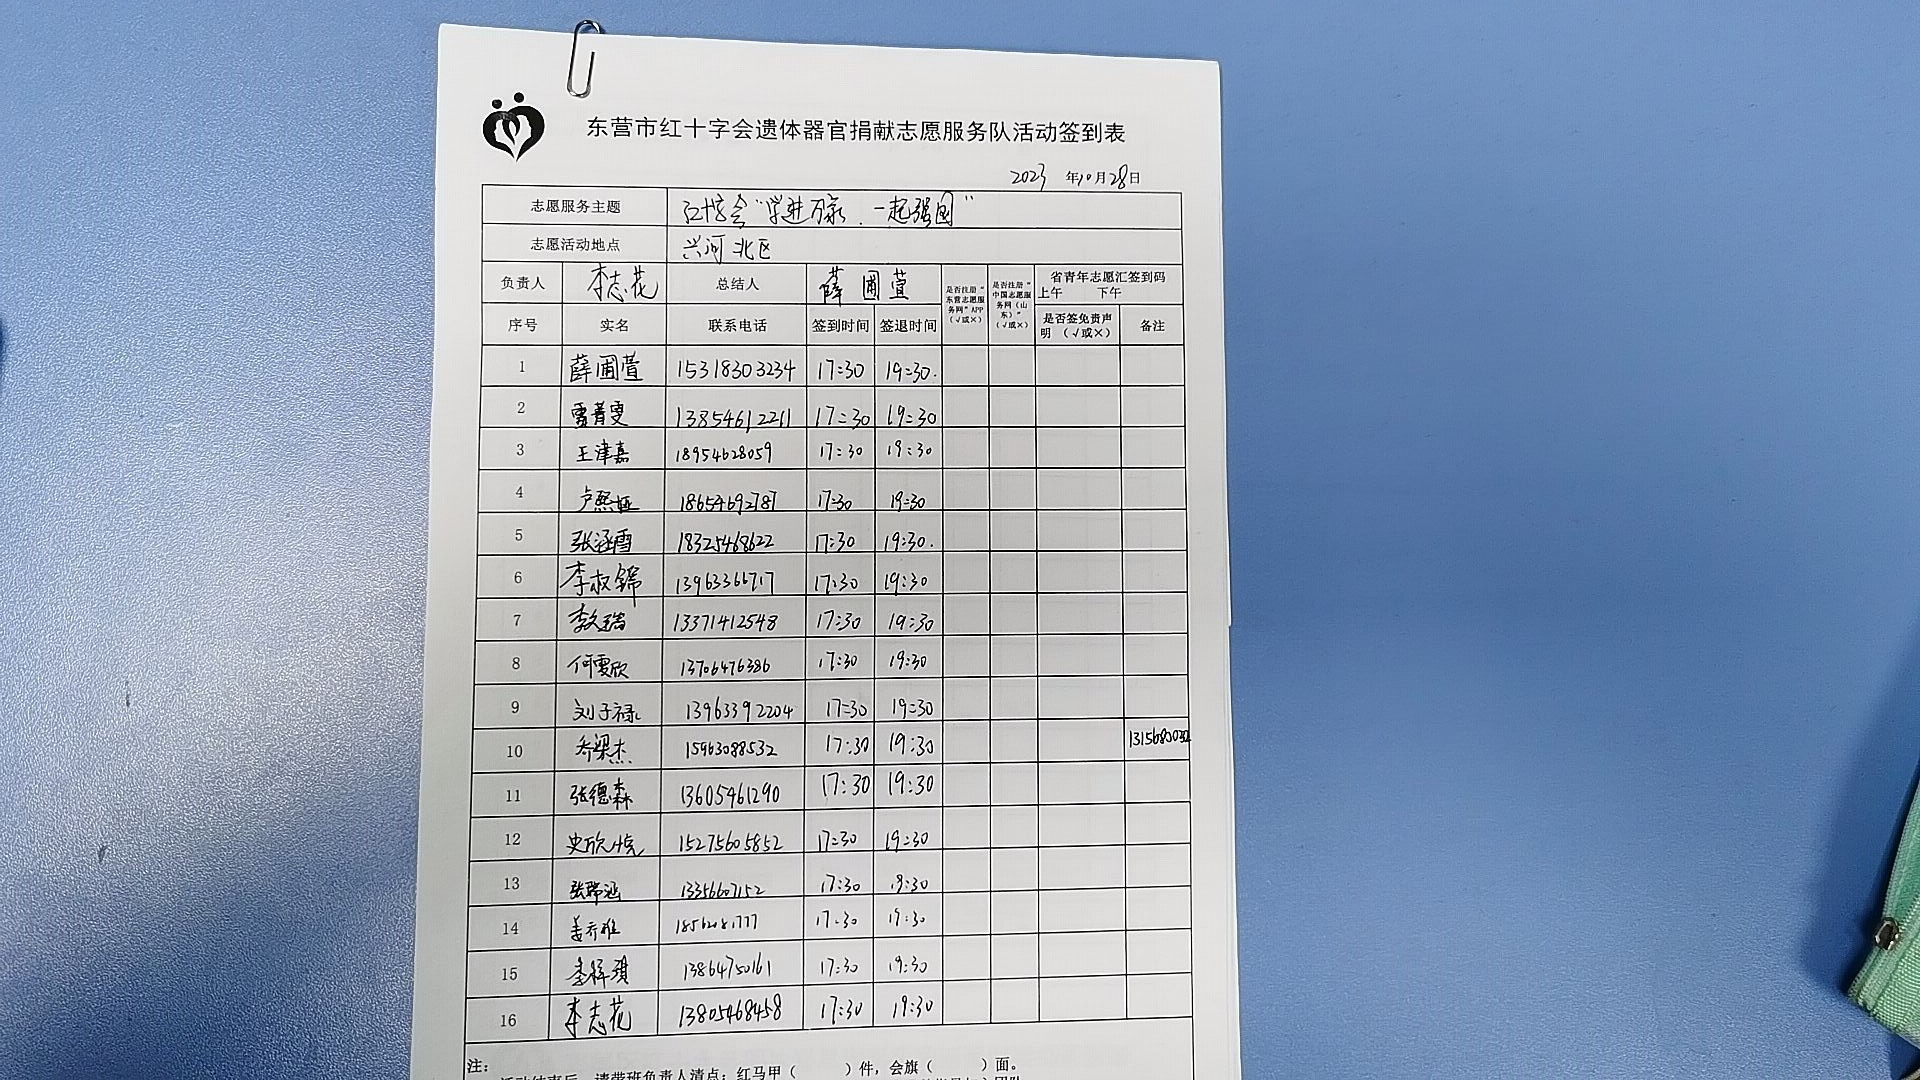 东营市红十字会遗体器官捐献志愿服务队活动签到表
2023 年10月28日
志愿服务主题 红十字会“学进万家,一起强国”
志愿活动地点 兴河北区
负责人 李志花 总结人 薛圃萱 是否注册“东营志愿服务网”APP（√或×） 是否注册“中国志愿服务网（山东）”（√或×） 省青年志愿汇签到码 上午 下午
序号 实名 联系电话 签到时间 签退时间 是否签免责声明（√或×） 备注
1 薛圃萱 15318303234 17:30 19:30.
2 雷菁雯 13854612211 17:30 19:30
3 王津嘉 18954628059 17:30 19:30
4 卢熙 18654692787 17:30 19:30
5 张涵雪 18325468622 17:30 19:30.
6 李叔锦 13963366717 17:30 19:30
7 13371412548 17:30 19:30
8 何雯欣 13706476386 17:30 19:30
9 刘子禄 13963392204 17:30 19:30
10 乔梁杰 15963088532 17:30 19:30
11 张德森 13605461290 17:30 19:30
12 史欣悦 15275605852 17:30 19:30
13 张瑞涵 13356607152 17:30 19:30
14 姜乔雅 17:30 19:30
15 李祥琪 13864750161 17:30 19:30
16 李志花 13805468458 17:30 19:30
注:
活动结束后，请带班负责人清点：红马甲（ ）件，会旗（ ）面。